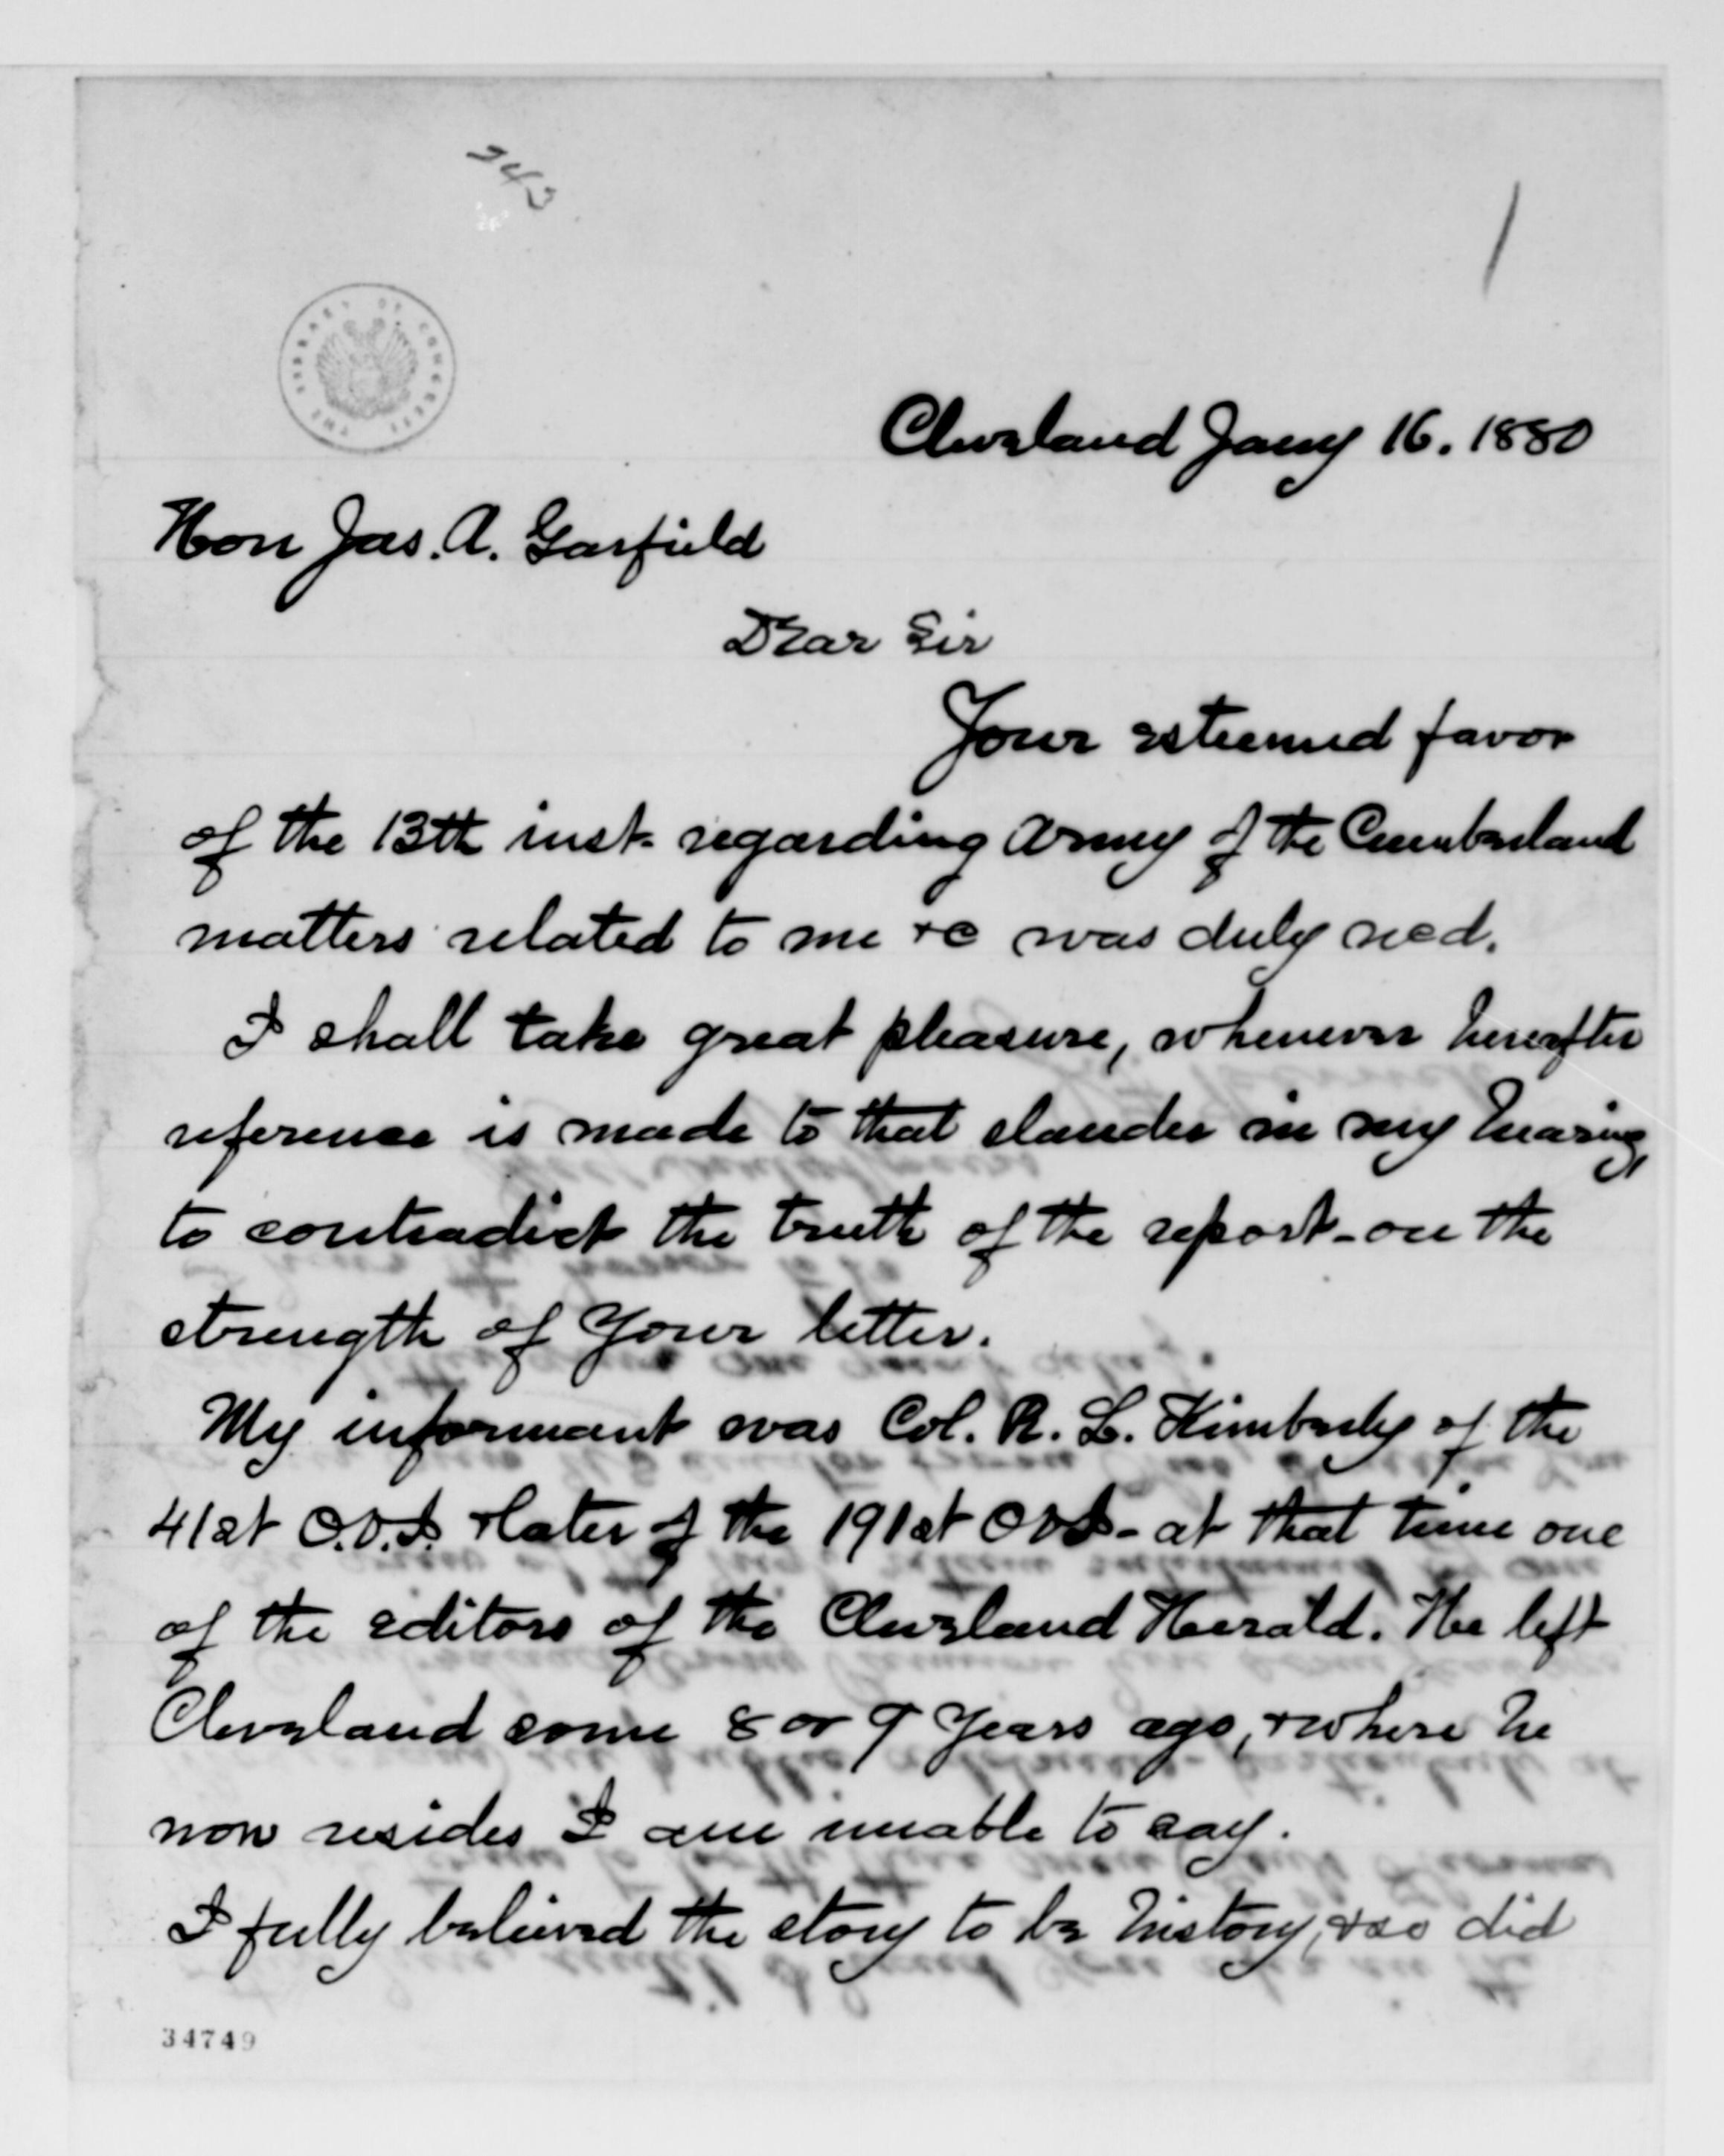 343
THE LIBRARY OF CONGRESS
Cleveland Jany 16. 1880
Hon Jas. A. Garfield
Dear Sir
Your esteemed favor
of the 13th inst. regarding Army of the Cumberland
matters related to me &c was duly recd.
I shall take great pleasure, whenever hereafter
reference is made to that slander in my hearing,
to contradict the truth of the report - on the
strength of Your letter.
My informant was Col. R. L. Kimberly of the
41st O.V.I. & later of the 191st OVI - at that time one
of the editors of the Cleveland Herald. He left
Cleveland some 8 or 9 Years ago, & where he
now resides I am unable to say.
I fully believed the story to be history, & so did
34749